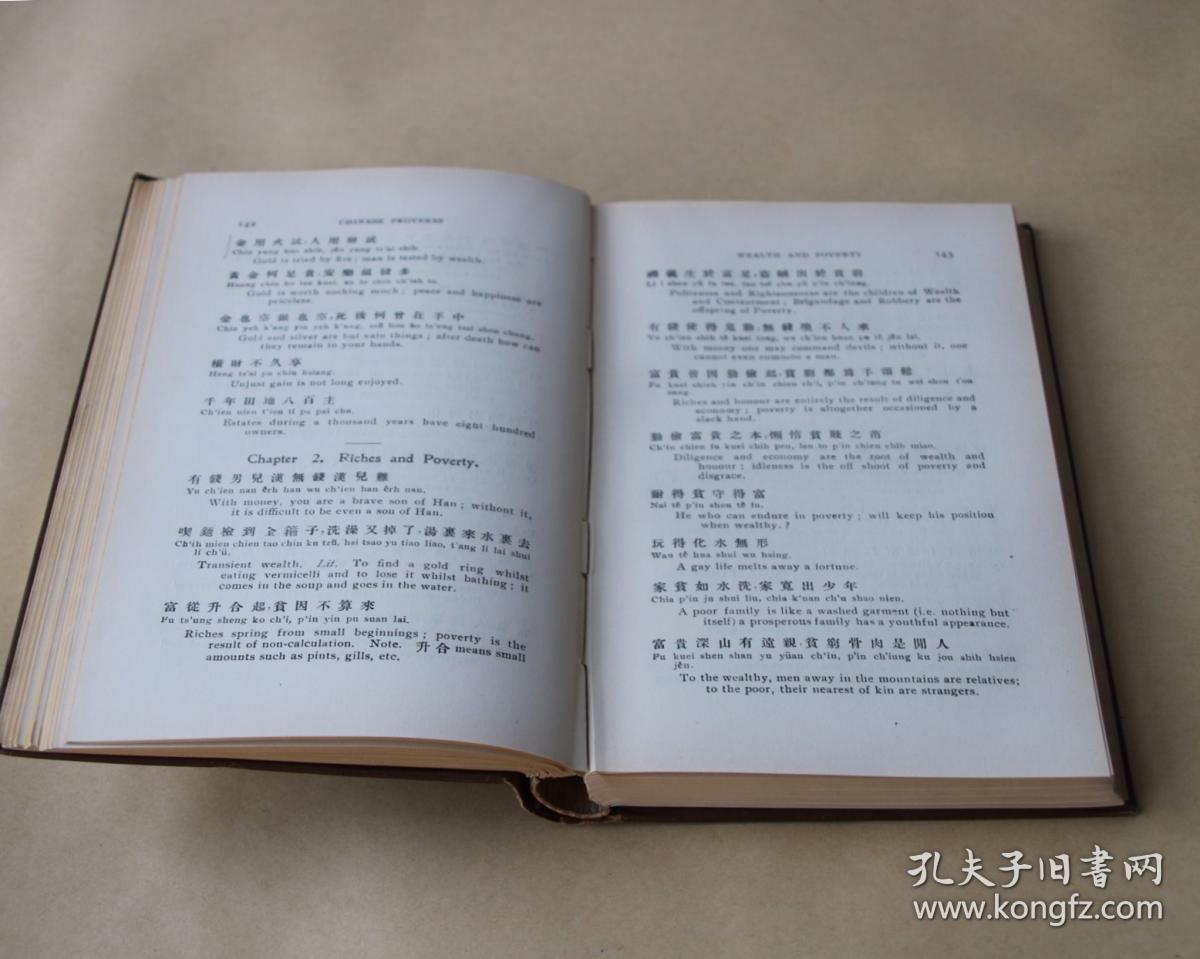 142 CHINESE PROVERBS
金用火試，人用財試
Chin yung huo shih, jên yung ts'ai shih.
Gold is tried by fire; man is tested by wealth.
黃金何足貴，安樂最値多
Gold is worth nothing much; peace and happiness are
priceless.
金也空銀也空，死後何曾在手中
Chin yeh k'ung yin yeh k'ung, ssŭ hou ho ts'eng tsai shou chung.
Gold and silver are but vain things; after death how can
they remain in your hands.
橫財不久享
Heng ts'ai pu chiu hsiang.
Unjust gain is not long enjoyed.
千年田地八百主
Ch'ien nien t'ien ti pa pai chu.
Estates during a thousand years have eight hundred
owners.
Chapter 2. Riches and Poverty.
有錢男兒漢無錢漢兒難
Yu ch'ien nan êrh han wu ch'ien han êrh nan.
With money, you are a brave son of Han; without it,
it is difficult to be even a son of Han.
喫麵檢到金箍子，洗澡又掉了，湯裏來水裏去
Ch'ih mien chien tao chin ku tzŭ, hsi tsao yu tiao liao, t'ang li lai shui
li ch'ü.
Transient wealth. Lit. To find a gold ring whilst
eating vermicelli and to lose it whilst bathing; it
comes in the soup and goes in the water.
富從升合起，貧因不算來
Fu ts'ung sheng ko ch'i, p'in yin pu suan lai.
Riches spring from small beginnings; poverty is the
result of non-calculation. Note. 升合 means small
amounts such as pints, gills, etc.
WEALTH AND POVERTY 143
禮義生於富足，盜賊出於貧窮
Politeness and Righteousness are the children of Wealth
and Contentment; Brigandage and Robbery are the
offspring of Poverty.
有錢使得鬼動，無錢喚不人來
Yu ch'ien shih tê kuei tung, wu ch'ien huan pu tê jên lai.
With money one may command devils; without it, one
cannot even summon a man.
富貴皆因勤儉起，貧窮都爲手頭鬆
Fu kuei chieh yin ch'in chien ch'i, p'in ch'iung tu wei shou t'ou
sung.
Riches and honour are entirely the result of diligence and
economy; poverty is altogether occasioned by a
slack hand.
勤儉富貴之本，懶惰貧賤之苗
Ch'in chien fu kuei chih pen, lan to p'in chien chih miao.
Diligence and economy are the root of wealth and
honour; idleness is the off shoot of poverty and
disgrace.
耐得貧守得富
Nai tê p'in shou tê fu.
He who can endure in poverty; will keep his position
when wealthy.?
玩得化水無形
Wan tê hua shui wu hsing.
A gay life melts away a fortune.
家貧如水洗，家寬出少年
Chia p'in ju shui liu, chia k'uan ch'u shao nien.
A poor family is like a washed garment (i.e. nothing but
itself) a prosperous family has a youthful appearance.
富貴深山有遠親，貧窮骨肉是閒人
Fu kuei shen shan yu yüan ch'in, p'in ch'iung ku jou shih hsien
jên.
To the wealthy, men away in the mountains are relatives;
to the poor, their nearest of kin are strangers.
孔夫子旧书网
www.kongfz.com